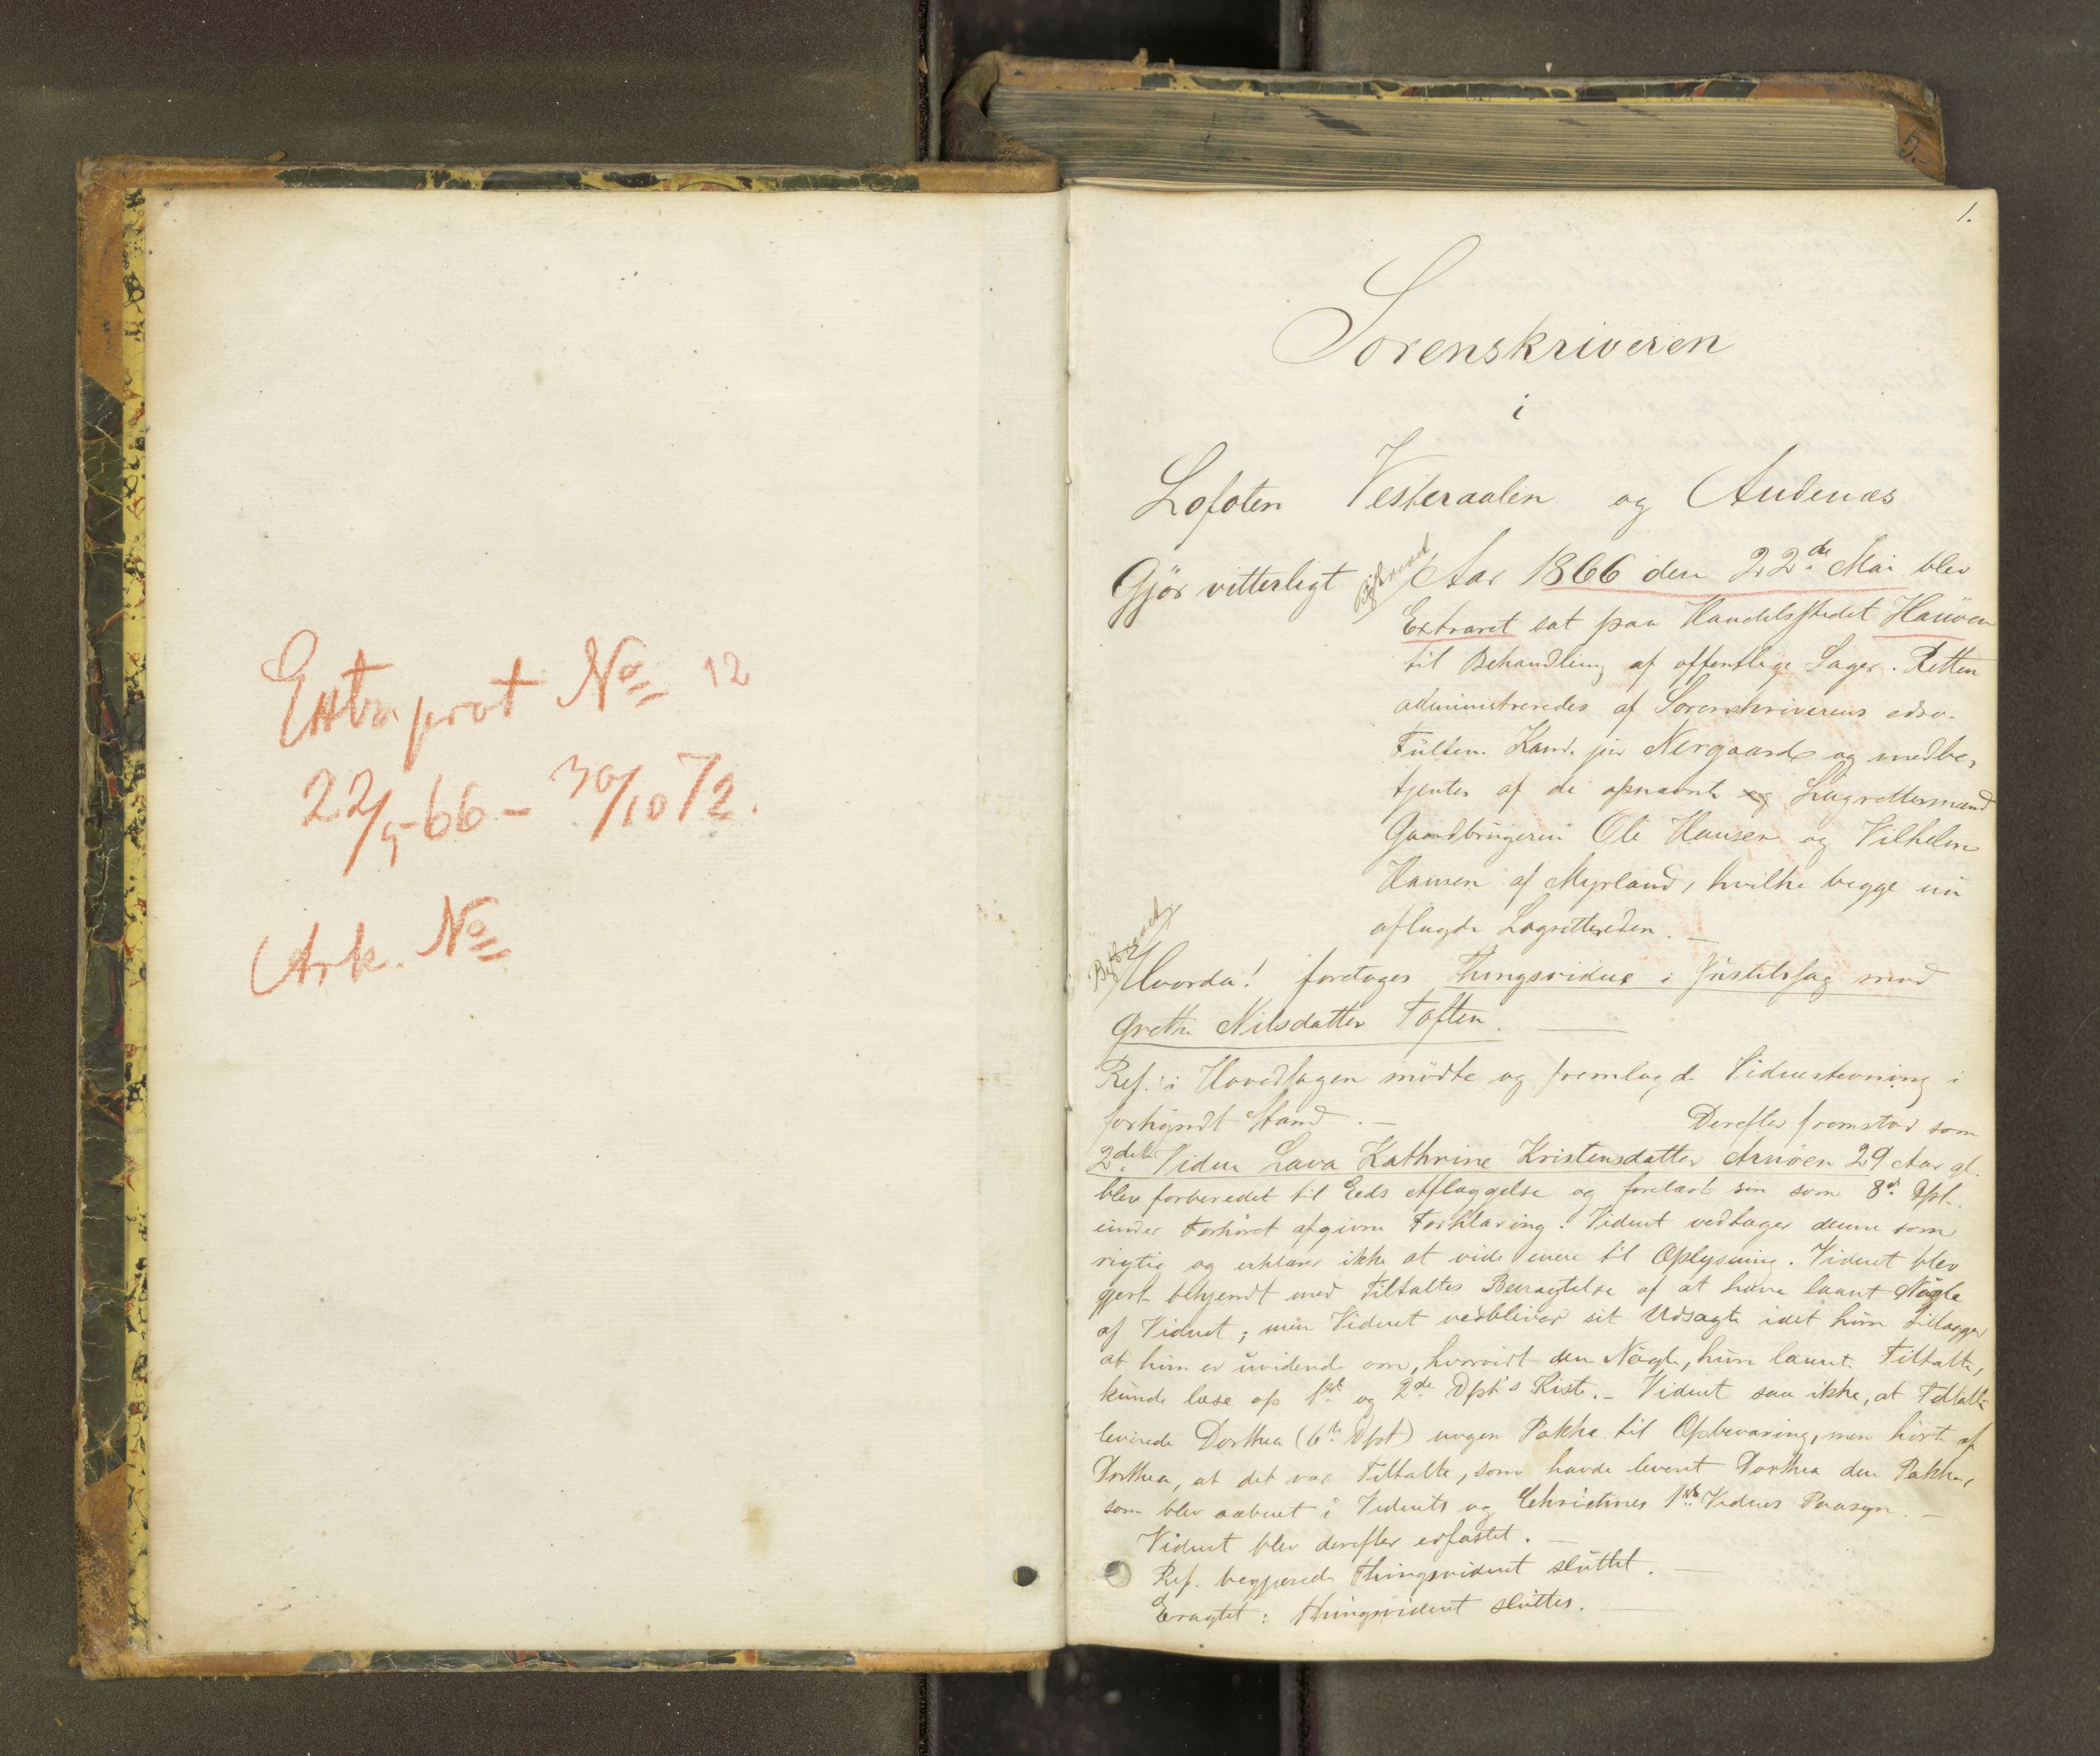 Extra prot No 12
22/5-66 - 30/10 72.
Ark. No
5.
1.
Sorenskriveren
i
Lofoten Vesteraalen og Andenæs
Gjör vitterligt Aar 1866 den 22de Mai blev
Extraret sat paa Handelsstedet Hanöen
til Behandling af offentlige Sager. Retten
administreredes af Sorenskriverens edsv.
Fuldm. Kand. jur Nergaard og medbe-
tjentes af de opnævnte Lagrettesmænd
Gaardbrugerne Ole Hansen og Vilhelm
Hansen af Myrland, hvilke begge nu
aflagde Lagretteeden. —
Hvorda! foretoges Thingsvidne i Justitssag mod
Grethe Nilsdatter Toften. —
Ref. i Hovedsagen mödte og fremlagde Vidnestevning i
forkyndt Stand. — Derefter fremstod som
2det Vidne Lava Kathrine Kristensdatter Arnöen 29 Aar gl.
blev forberedet til Eeds Aflæggelse og forelæst sin som 8de Dpt.
under Forhöret afgivne Forklaring. Vidnet vedtager denne som
rigtig og erklærer ikke at vide mere til Oplysning. Vidnet blev
gjort bekjendt med Tiltaltes Benægtelse af at have laant Nögle
af Vidnet; men Vidnet vedbliver sit Udsagn idet hun tillægger
at hun er uvidende om, hvorvidt den Nögle, hun laante Tiltalte,
kunde læse op 1ste og 2de Dpt's Kiste. — Vidnet saa ikke, at Tiltalte
leverede Dorthea (6te Dpt) nogen Pakke til Opbevaring, men hörte af
Dorthea, at det var Tiltalte, som havde leveret Dorthea den Pakke,
som blev aabnet i Vidnets og Christines 1ste Vidnes Paasyn. —
Vidnet blev derefter edfæstet. —
Ref. begjærede Thingsvidnet sluttet. —
Eragtet: Thingsvidnet sluttes. —